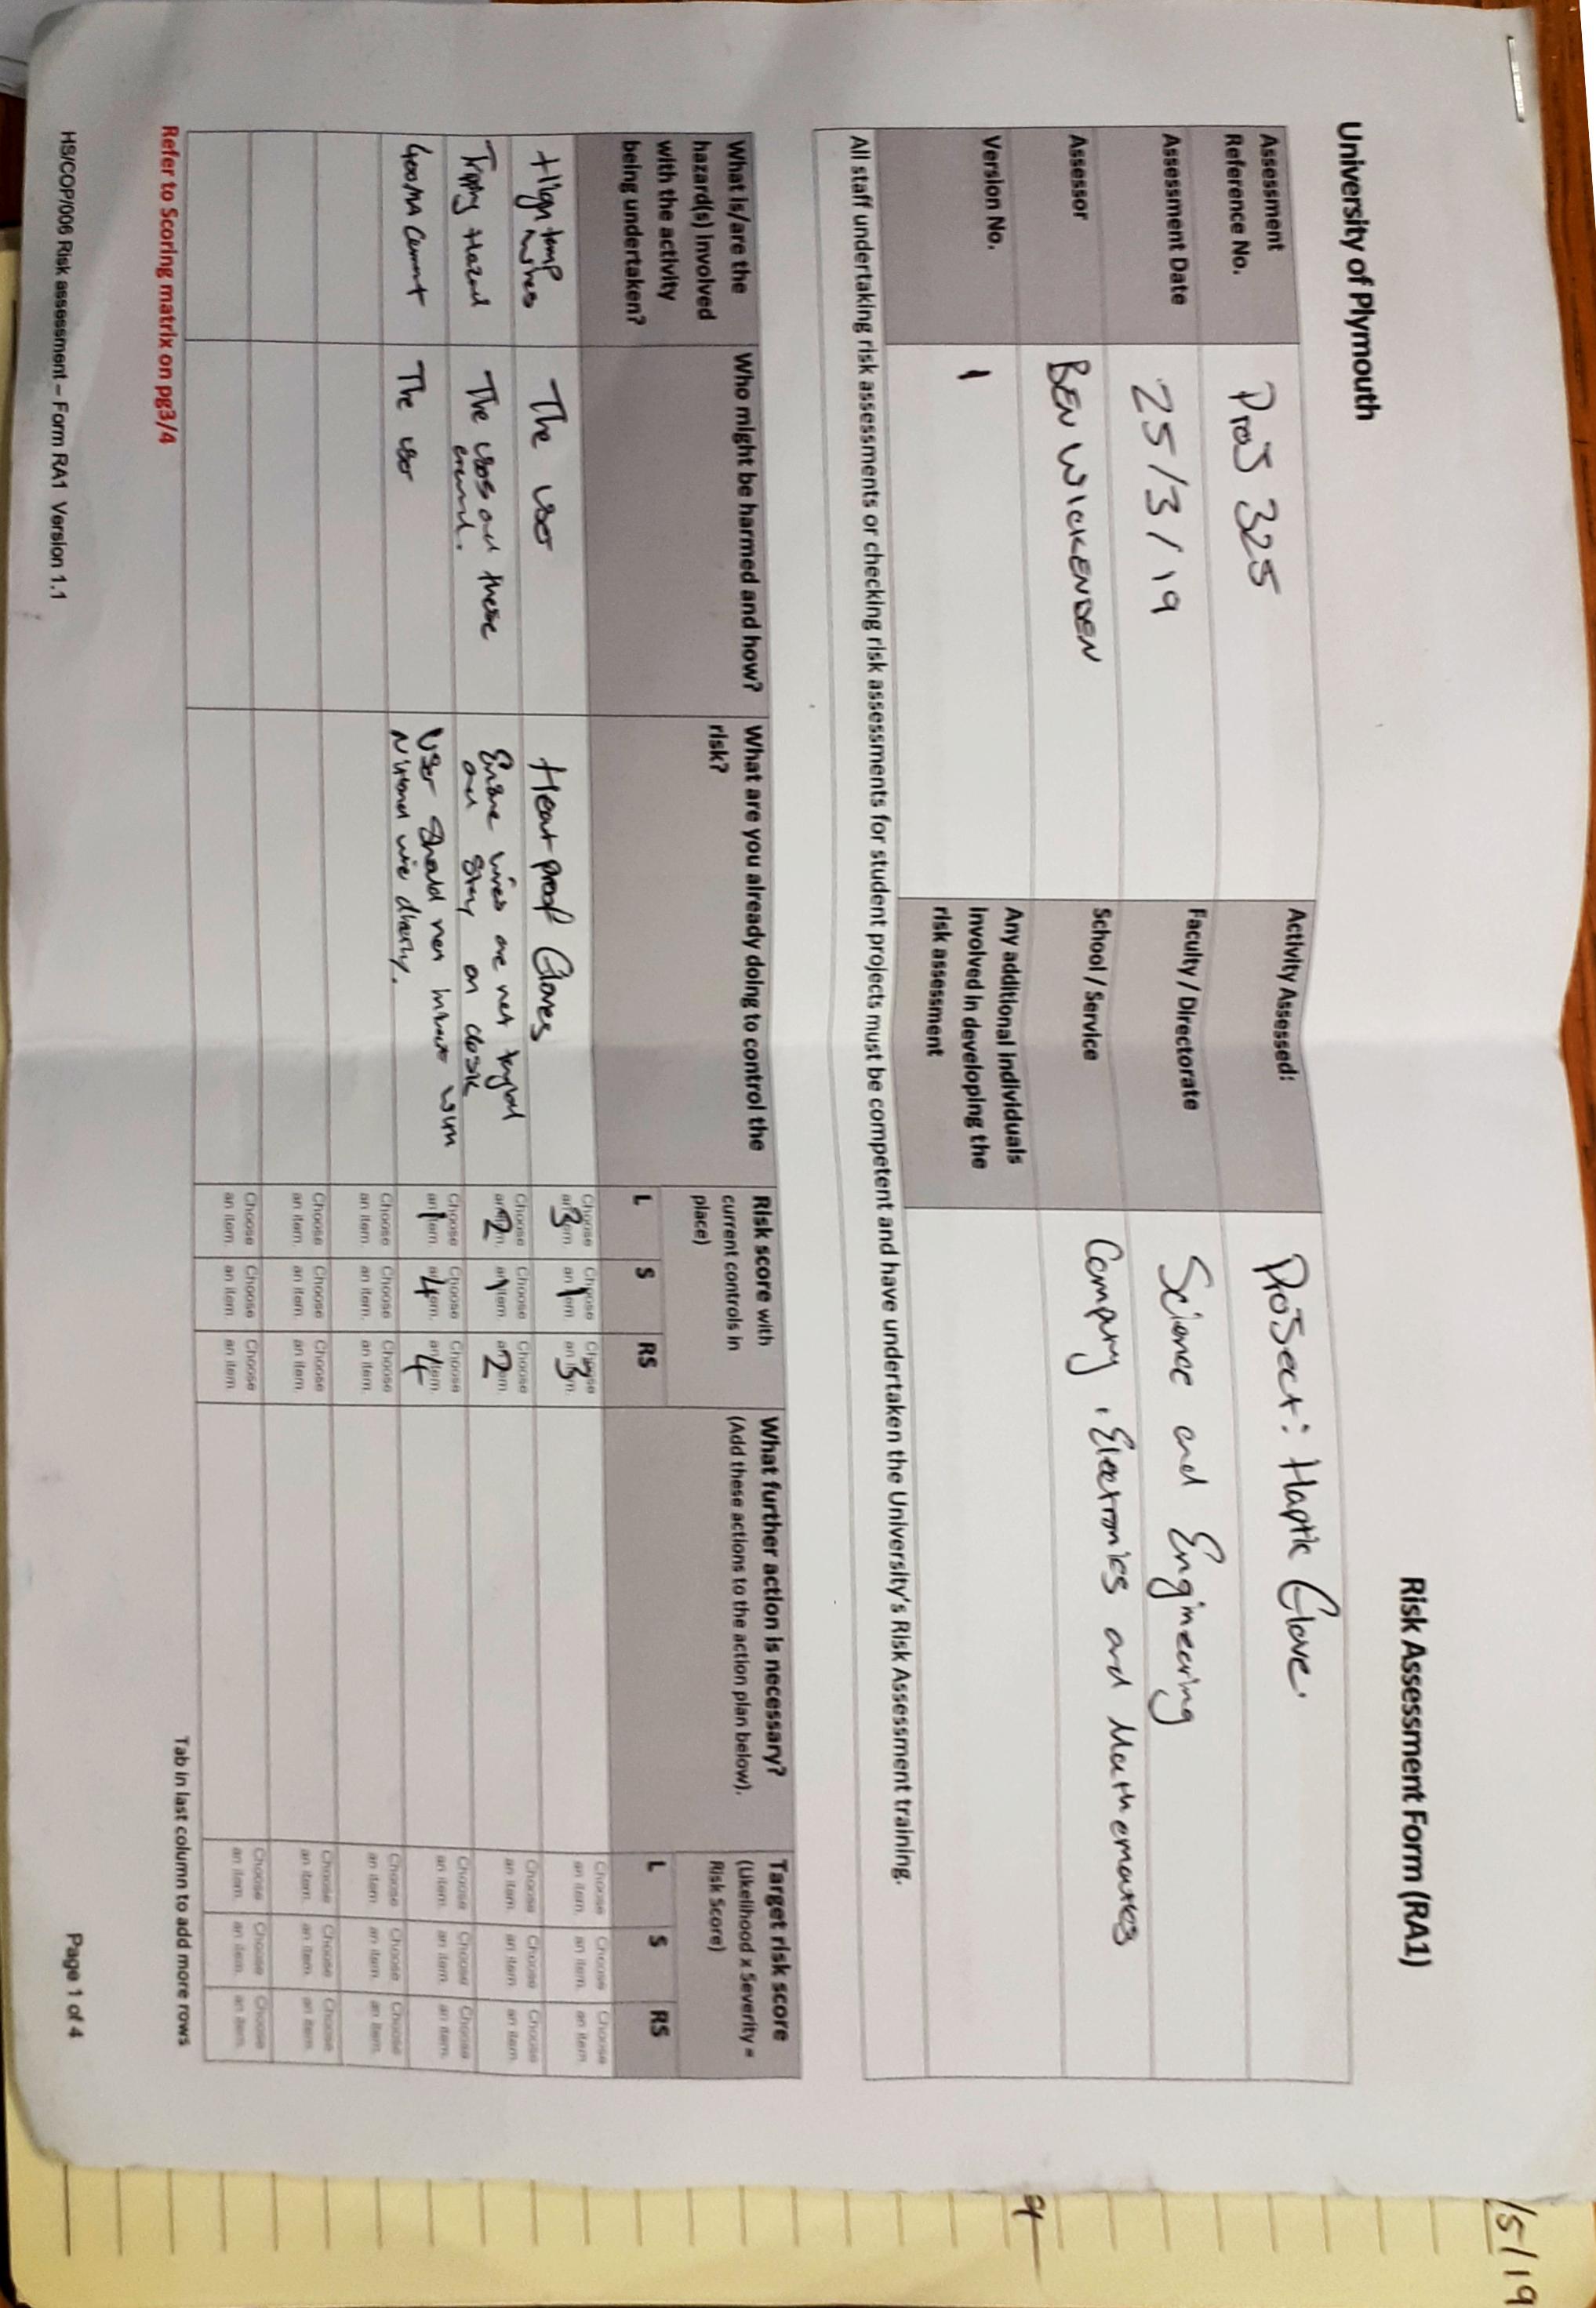 University of Plymouth
Risk Assessment Form (RA1)
Assessment Reference No.
Proj 325
Activity Assessed:
Project: Haptic Glove.
Assessment Date
25/3/19
Faculty / Directorate
Science and Engineering
Assessor
BEN WICKENDEN
School / Service
Computing, Electronics and Mathematics
Version No.
1
Any additional individuals involved in developing the risk assessment
All staff undertaking risk assessments or checking risk assessments for student projects must be competent and have undertaken the University's Risk Assessment training.
What is/are the hazard(s) involved with the activity being undertaken?
Who might be harmed and how?
What are you already doing to control the risk?
Risk score with current controls in place)
L S RS
What further action is necessary?
(Add these actions to the action plan below).
Target risk score
(Likelihood x Severity = Risk Score)
L S RS
High temp wires
The user
Heat proof Gloves
3 1 3
Choose an item. Choose an item. Choose an item.
Tripping Hazard
The user and those around.
Ensure wires are not
and stay on desk
2 1 2
Choose an item. Choose an item. Choose an item.
400mA Current
The user
User should not interact with
Nitinol wire directly.
1 4 4
Choose an item. Choose an item. Choose an item.
Choose an item. Choose an item. Choose an item.
Choose an item. Choose an item. Choose an item.
Choose an item. Choose an item. Choose an item.
Choose an item. Choose an item. Choose an item.
Choose an item. Choose an item. Choose an item.
Choose an item. Choose an item. Choose an item.
Refer to Scoring matrix on pg3/4
Tab in last column to add more rows
HS/COP/006 Risk assessment – Form RA1 Version 1.1
Page 1 of 4
/5/19